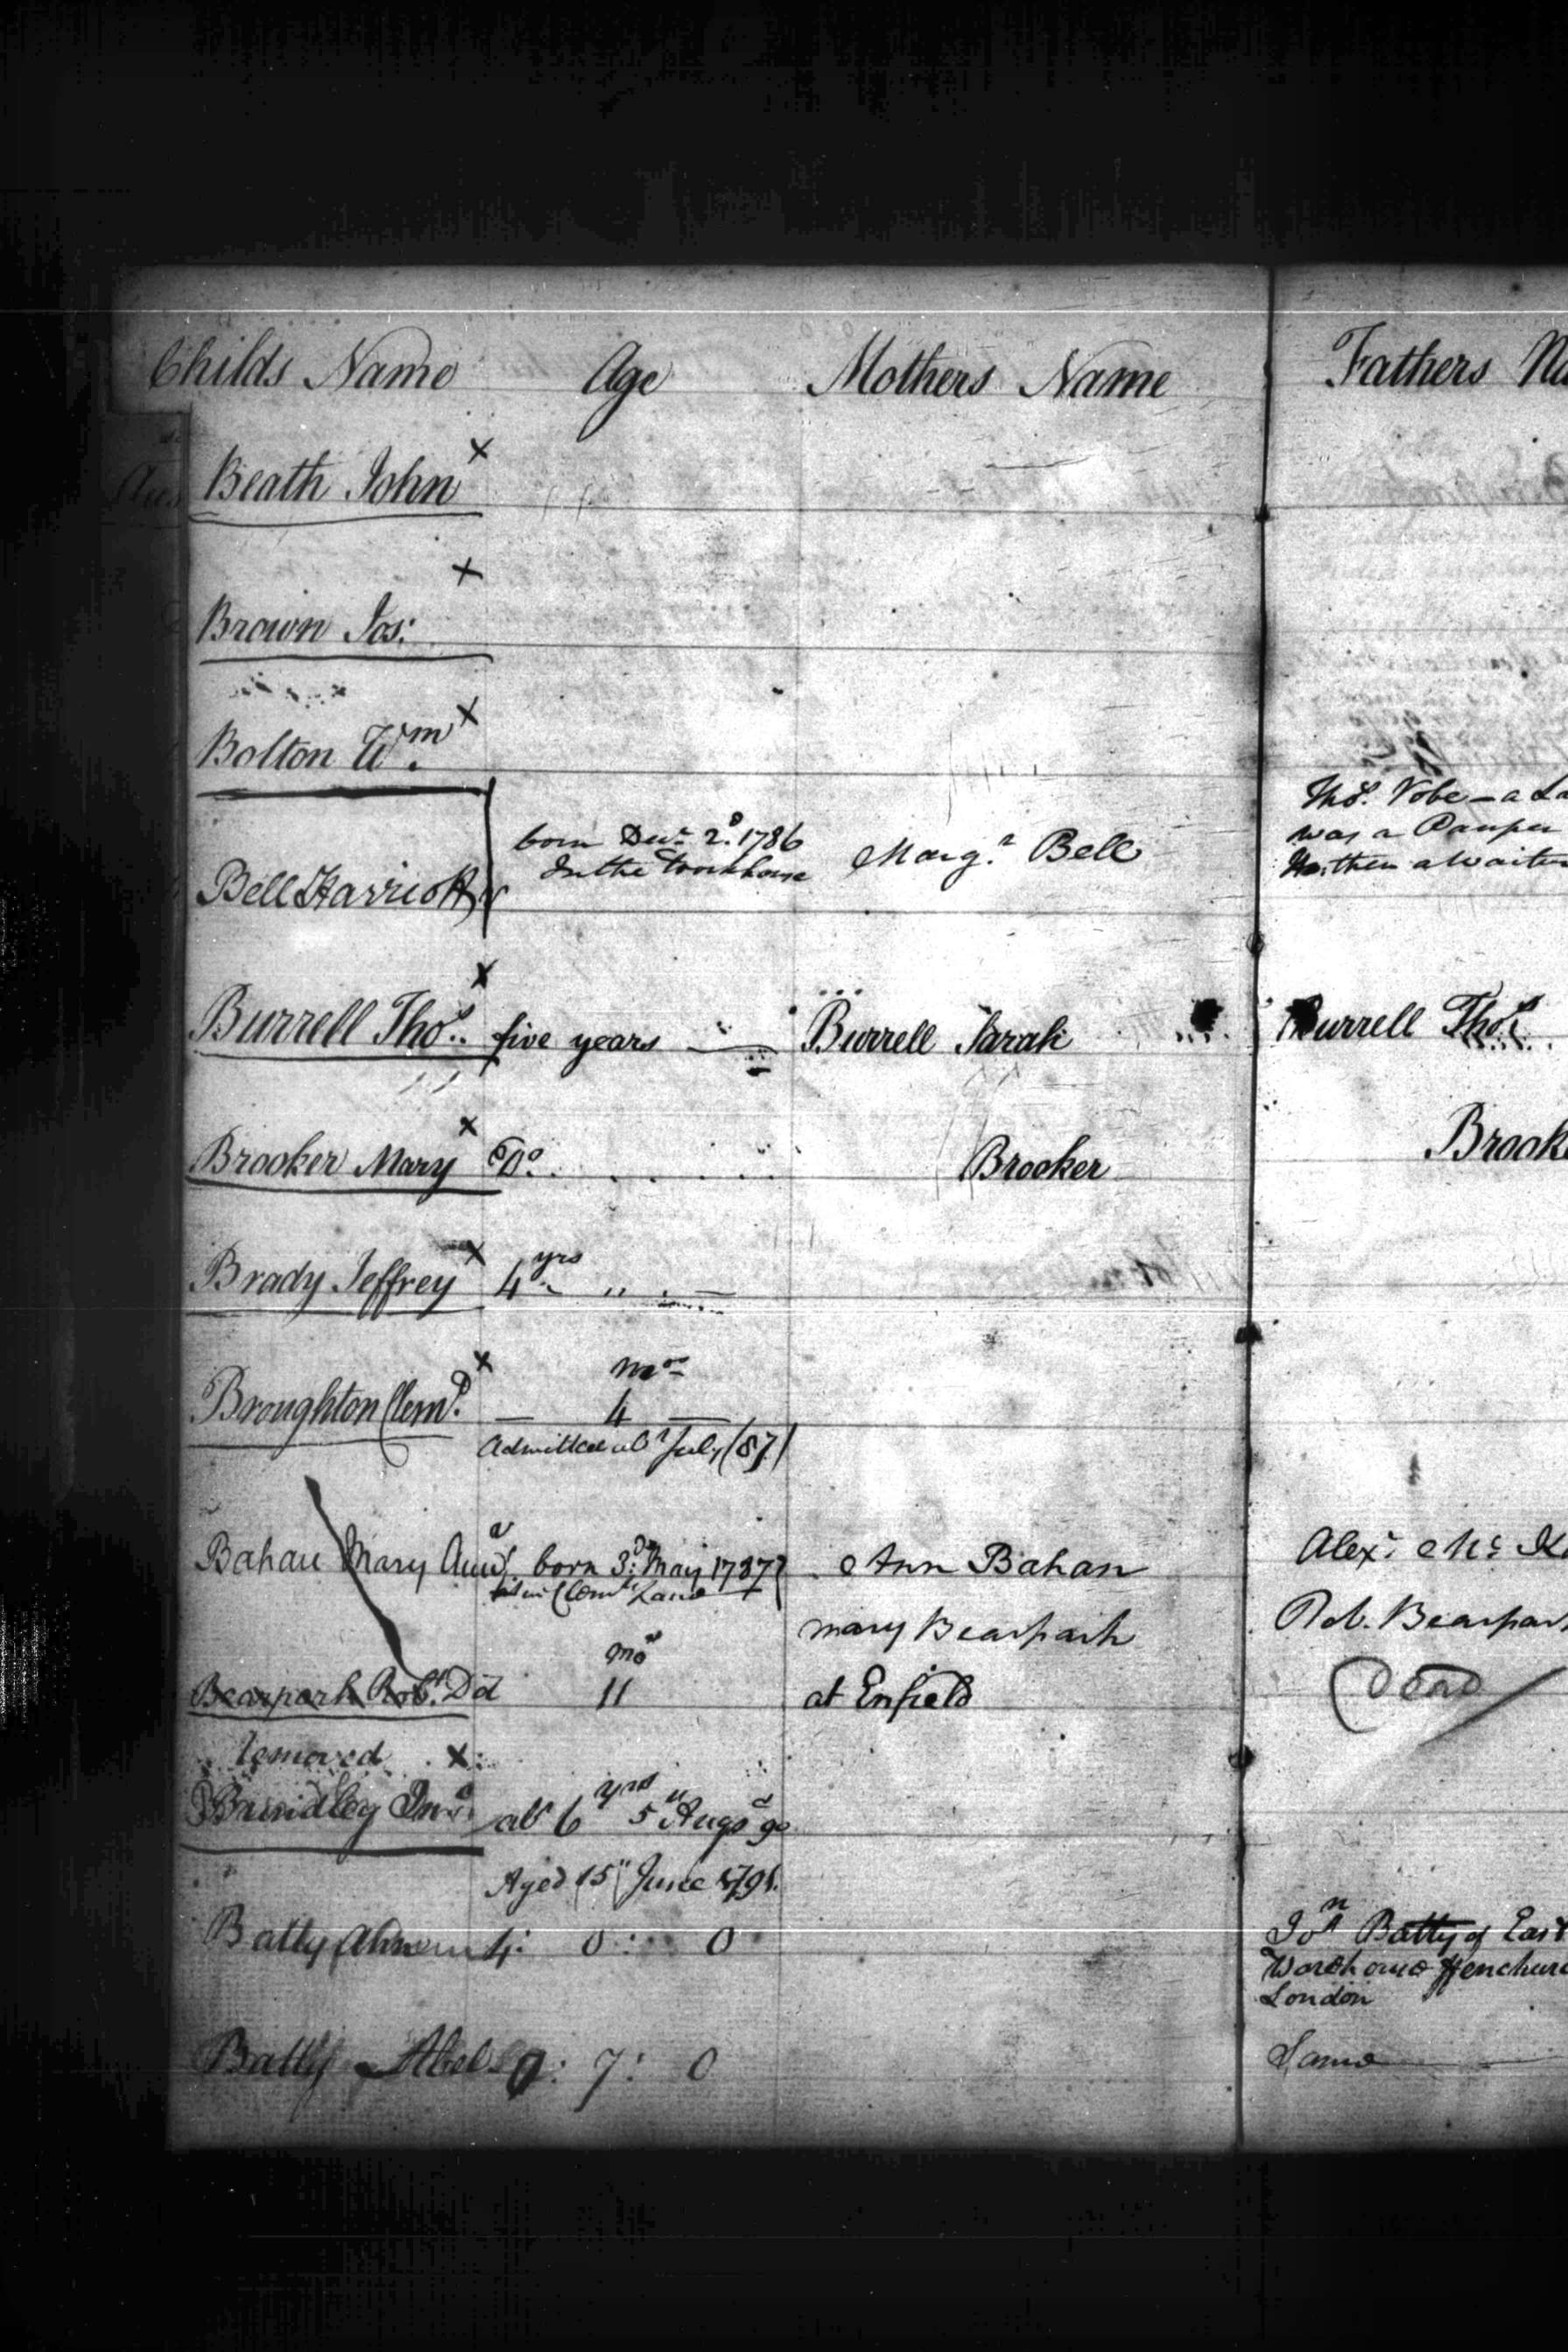 Childs Name Age Mothers Name Fathers Na
Beath John x
x
Brown Jos:
Bolton Wm. x
born Decr. 2d. 1786
In the Workhouse
Bell Harriott
Margt. Bell
Thos. Vobe - a La
was a Pauper
then a Waiter
x
Burrell Thos. five years Burrell Sarah Burrell Thos.
Brooker Mary x Do. Brooker Brook
Brady Jeffrey x 4 yrs
x mos
Broughton Clemt. 4
Admitted abt July (87)
Bahan Mary Ann born 3d. May 1787 Ann Bahan Alexr. Mc K
in Clemts Lane
mary Bearpark Rob. Bearpar
mos
Bearpark Robt. Dd 11 at Enfield Dead
removed x
Brindley Jno. abt 6 yrs 5 Augt 90
Aged 15 June 1791.
Batty 4: 0: 0
Jon Batty of East
Warehouse ffenchurc
London
Batty Abel 0: 7: 0 Same